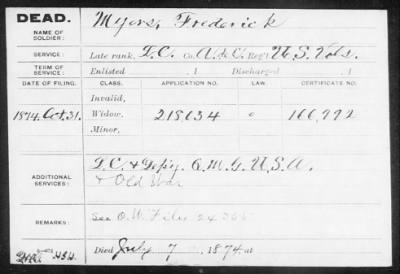 DEAD.
NAME OF SOLDIER: Myers, Frederick
SERVICE: Late rank, Co. Reg't U.S. Vols.
TERM OF SERVICE: Enlisted , 1 Discharged , 1
DATE OF FILING. CLASS. APPLICATION NO. LAW CERTIFICATE NO.
Invalid,
1874, Oct. 31. Widow, 218034 166,992
Minor,
ADDITIONAL SERVICES: Q.M.G. U.S.A.
& Old War
REMARKS: See O.W. File
Died July 7, 1874, at